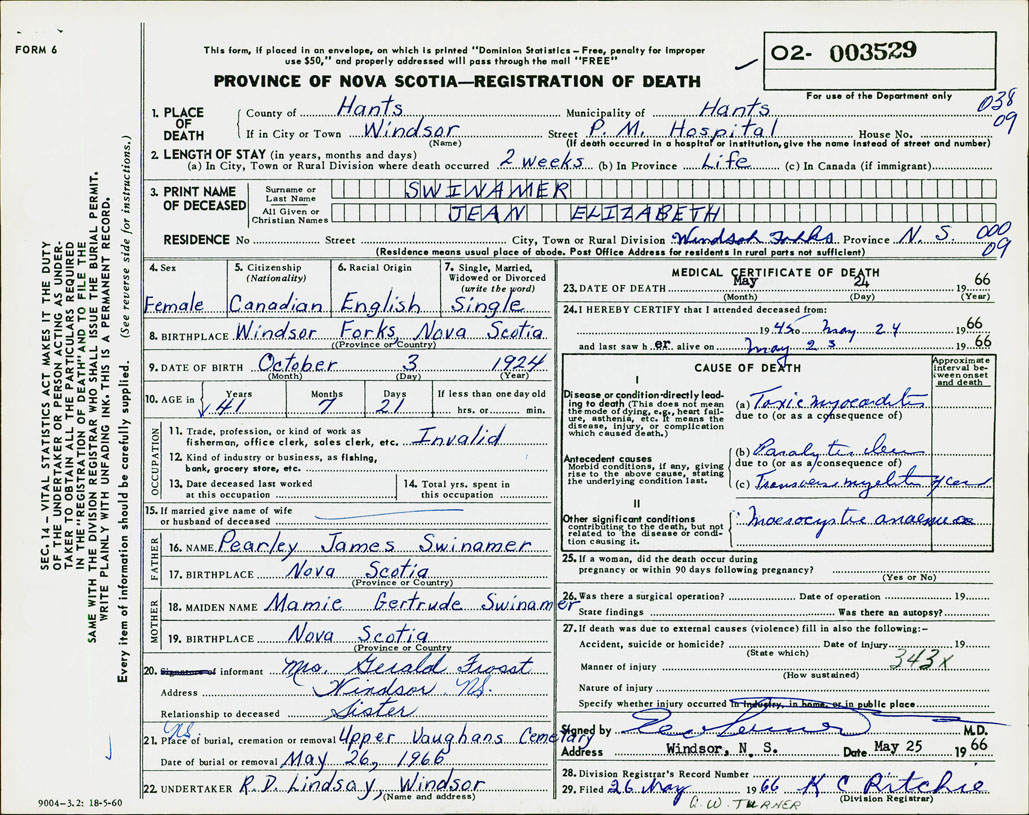 FORM 6
This form, if placed in an envelope, on which is printed "Dominion Statistics – Free, penalty for improper
use $50," and properly addressed will pass through the mail "FREE"
O2- 003529
PROVINCE OF NOVA SCOTIA—REGISTRATION OF DEATH
For use of the Department only
038
09
1. PLACE OF DEATH
County of Hants Municipality of Hants
If in City or Town Windsor Street P. M. Hospital House No.
(Name) (If death occurred in a hospital or institution, give the name instead of street and number)
2. LENGTH OF STAY (in years, months and days)
(a) In City, Town or Rural Division where death occurred 2 weeks (b) In Province Life (c) In Canada (if immigrant)
3. PRINT NAME OF DECEASED
Surname or Last Name SWINAMER
All Given or Christian Names JEAN ELIZABETH
RESIDENCE No Street City, Town or Rural Division Windsor Forks Province N. S.
000
09
(Residence means usual place of abode. Post Office Address for residents in rural parts not sufficient)
4. Sex
Female
5. Citizenship (Nationality)
Canadian
6. Racial Origin
English
7. Single, Married, Widowed or Divorced (write the word)
Single
8. BIRTHPLACE Windsor Forks, Nova Scotia
(Province or Country)
9. DATE OF BIRTH October 3 1924
(Month) (Day) (Year)
10. AGE in Years Months Days If less than one day old
41 7 21 hrs. or min.
OCCUPATION
11. Trade, profession, or kind of work as
fisherman, office clerk, sales clerk, etc. Invalid
12. Kind of industry or business, as fishing,
bank, grocery store, etc.
13. Date deceased last worked
at this occupation
14. Total yrs. spent in
this occupation
15. If married give name of wife
or husband of deceased
FATHER
16. NAME Pearley James Swinamer
17. BIRTHPLACE Nova Scotia
(Province or Country)
MOTHER
18. MAIDEN NAME Mamie Gertrude Swinamer
19. BIRTHPLACE Nova Scotia
(Province or Country)
20. Signature of informant Mrs. Gerald Frosst
Address Windsor NS.
Relationship to deceased Sister
NS.
21. Place of burial, cremation or removal Upper Vaughans Cemetary
Date of burial or removal May 26, 1966
22. UNDERTAKER R. D. Lindsay, Windsor
(Name and address)
MEDICAL CERTIFICATE OF DEATH
23. DATE OF DEATH May 24 1966
(Month) (Day) (Year)
24. I HEREBY CERTIFY that I attended deceased from:
1945 to May 24 1966
and last saw her alive on May 23 1966
CAUSE OF DEATH
Approximate interval between onset and death
I
Disease or condition directly leading to death (This does not mean the mode of dying, e.g., heart failure, asthenia, etc. It means the disease, injury, or complication which caused death.)
(a) Toxic myocarditis
due to (or as a consequence of)
Antecedent causes
Morbid conditions, if any, giving rise to the above cause, stating the underlying condition last.
(b) Paralytic ileus
due to (or as a consequence of)
(c) Transverse myelitis
II
Other significant conditions
contributing to the death, but not related to the disease or condition causing it.
Macrocystic anaemia
25. If a woman, did the death occur during
pregnancy or within 90 days following pregnancy?
(Yes or No)
26. Was there a surgical operation? Date of operation 19
State findings Was there an autopsy?
27. If death was due to external causes (violence) fill in also the following:-
Accident, suicide or homicide? Date of injury 19
(State which)
343x
Manner of injury
(How sustained)
Nature of injury
Specify whether injury occurred in industry, in home, or in public place
Signed by M.D.
Address Windsor, N. S. Date May 25 1966
28. Division Registrar's Record Number
29. Filed 26 May 1966 K C Ritchie
(Division Registrar)
G. W. TURNER
SEC. 14 – VITAL STATISTICS ACT MAKES IT THE DUTY
OF THE UNDERTAKER OR PERSON ACTING AS UNDER-
TAKER TO OBTAIN ALL THE PARTICULARS REQUIRED
IN THE "REGISTRATION OF DEATH" AND TO FILE THE
SAME WITH THE DIVISION REGISTRAR WHO SHALL ISSUE THE BURIAL PERMIT.
WRITE PLAINLY WITH UNFADING INK. THIS IS A PERMANENT RECORD.
Every item of information should be carefully supplied. (See reverse side for instructions.)
9004–3.2: 18-5-60